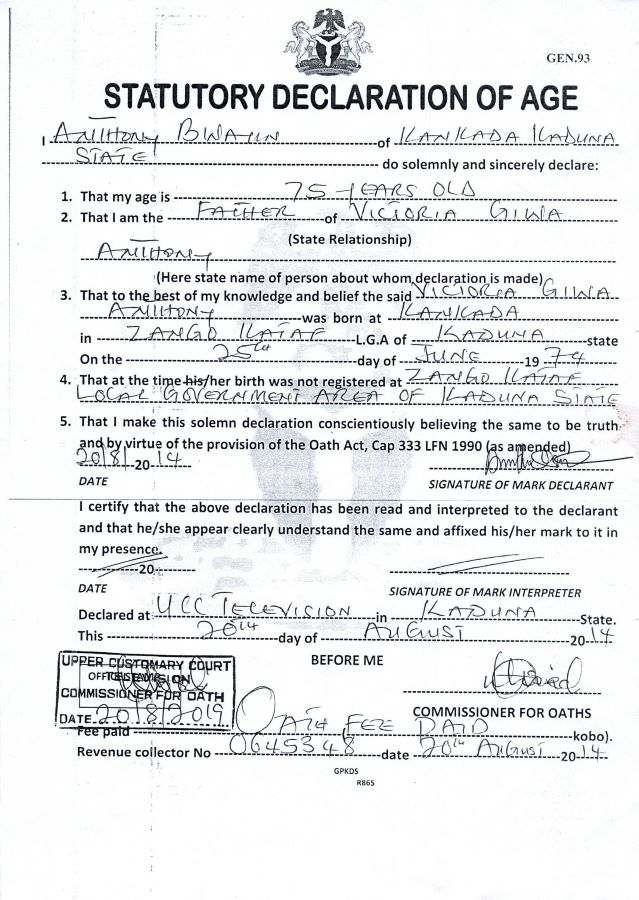 GEN.93
STATUTORY DECLARATION OF AGE
I ANTHONY BWAHN of KANKADA KADUNA
STATE do solemnly and sincerely declare:
1. That my age is 75 YEARS OLD
2. That I am the FATHER of VICTORIA GIWA
(State Relationship)
ANTHONY
(Here state name of person about whom declaration is made)
3. That to the best of my knowledge and belief the said VICTORIA GIWA
ANTHONY was born at KANKADA
in ZANGO KATAF L.G.A of KADUNA state
On the 25th day of JUNE 1974
4. That at the time his/her birth was not registered at ZANGO KATAF
LOCAL GOVERNMENT AREA OF KADUNA STATE
5. That I make this solemn declaration conscientiously believing the same to be truth
and by virtue of the provision of the Oath Act, Cap 333 LFN 1990 (as amended)
20/8/-2014
DATE SIGNATURE OF MARK DECLARANT
I certify that the above declaration has been read and interpreted to the declarant
and that he/she appear clearly understand the same and affixed his/her mark to it in
my presence.
20
DATE SIGNATURE OF MARK INTERPRETER
Declared at UCC TELEVISION in KADUNA State.
This 20th day of AUGUST 2014
BEFORE ME
UPPER CUSTOMARY COURT
TELEVISION
COMMISSIONER FOR OATH
DATE 20/8/2019
COMMISSIONER FOR OATHS
Fee paid OATH FEE PAID kobo).
Revenue collector No 0645348 date 20th AUGUST 2014
GPKDS
R865